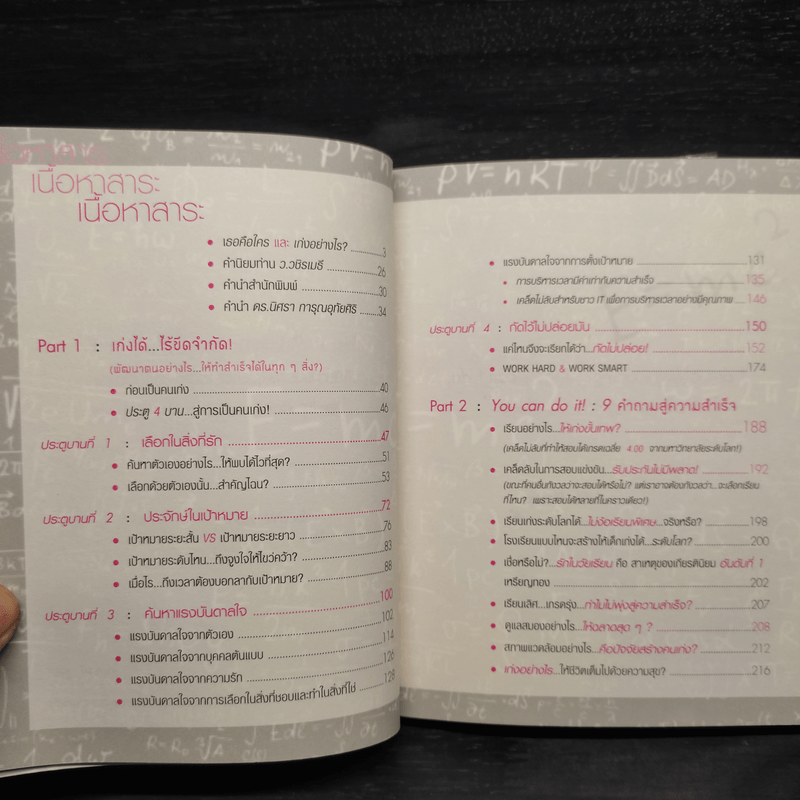 เนื้อหาสาระ
เนื้อหาสาระ
• เธอคือใคร และ เก่งอย่างไร? ............3
• คำนิยมท่าน ว.วชิรเมธี ............26
• คำนำสำนักพิมพ์ ............30
• คำนำ ดร.นิศรา การุณอุทัยศิริ ............34
Part 1 : เก่งได้...ไร้ขีดจำกัด!
(พัฒนาตนอย่างไร...ให้ทำสำเร็จได้ในทุก ๆ สิ่ง?)
• ก่อนเป็นคนเก่ง ............40
• ประตู 4 บาน...สู่การเป็นคนเก่ง! ............46
ประตูบานที่ 1 : เลือกในสิ่งที่รัก ............47
• ค้นหาตัวเองอย่างไร...ให้พบได้ไวที่สุด? ............51
• เลือกด้วยตัวเองนั้น...สำคัญไฉน? ............53
ประตูบานที่ 2 : ประจักษ์ในเป้าหมาย ............72
• เป้าหมายระยะสั้น VS เป้าหมายระยะยาว ............76
• เป้าหมายระดับไหน...ถึงจูงใจให้ไขว่คว้า? ............83
• เมื่อไร...ถึงเวลาต้องบอกลากับเป้าหมาย? ............88
ประตูบานที่ 3 : ค้นหาแรงบันดาลใจ ............100
• แรงบันดาลใจจากตัวเอง ............102
• แรงบันดาลใจจากบุคคลต้นแบบ ............114
• แรงบันดาลใจจากความรัก ............126
• แรงบันดาลใจจากการเลือกในสิ่งที่ชอบและทำในสิ่งที่ใช่ ............128
PV=nRT
• แรงบันดาลใจจากการตั้งเป้าหมาย ............131
• การบริหารเวลามีค่าเท่ากับความสำเร็จ ............135
• เคล็ดไม่ลับสำหรับชาว IT เพื่อการบริหารเวลาอย่างมีคุณภาพ ............146
ประตูบานที่ 4 : กัดไว้ไม่ปล่อยมัน ............150
• แค่ไหนจึงจะเรียกได้ว่า...กัดไม่ปล่อย! ............152
• WORK HARD & WORK SMART ............174
Part 2 : You can do it! : 9 คำถามสู่ความสำเร็จ
• เรียนอย่างไร...ให้เก่งขั้นเทพ? ............188
(เคล็ดไม่ลับที่ทำให้สอบได้เกรดเฉลี่ย 4.00 จากมหาวิทยาลัยระดับโลก!)
• เคล็ดลับในการสอบแข่งขัน...รับประกันไม่มีพลาด! ............192
(ขณะที่คนอื่นกังวลว่าจะสอบได้หรือไม่? แต่เราอาจต้องกังวลว่า...จะเลือกเรียน
ที่ไหน? เพราะสอบได้หลายที่ในคราวเดียว!)
• เรียนเก่งระดับโลกได้...ไม่ง้อเรียนพิเศษ...จริงหรือ? ............198
• โรงเรียนแบบไหนจะสร้างให้เด็กเก่งได้...ระดับโลก? ............200
• เชื่อหรือไม่?...รักในวัยเรียน คือ สาเหตุของเกียรตินิยม อันดับที่ 1
เหรียญทอง ............202
• เรียนเลิศ...เกรดรุ่ง...ทำไมไม่พุ่งสู่ความสำเร็จ? ............207
• ดูแลสมองอย่างไร...ให้ฉลาดสุด ๆ ? ............208
• สภาพแวดล้อมอย่างไร...คือปัจจัยสร้างคนเก่ง? ............212
• เก่งอย่างไร...ให้ชีวิตเต็มไปด้วยความสุข? ............216